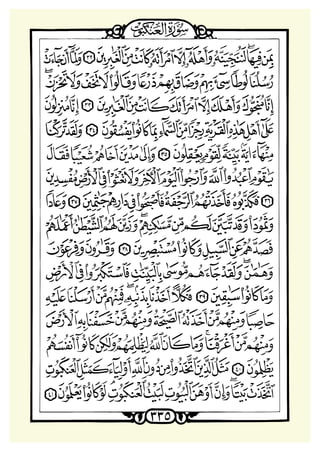 سُورَةُ الْعَنْكَبُوتِ
بِمَن فِيهَا لَنُنَجِّيَنَّهُۥ وَأَهْلَهُۥٓ إِلَّا ٱمْرَأَتَهُۥ كَانَتْ مِنَ ٱلْغَٰبِرِينَ ٣٢ وَلَمَّآ أَن جَآءَتْ
رُسُلُنَا لُوطًا سِىٓءَ بِهِمْ وَضَاقَ بِهِمْ ذَرْعًا وَقَالُوا۟ لَا تَخَفْ وَلَا تَحْزَنْ
إِنَّا مُنَجُّوكَ وَأَهْلَكَ إِلَّا ٱمْرَأَتَكَ كَانَتْ مِنَ ٱلْغَٰبِرِينَ ٣٣ إِنَّا مُنزِلُونَ
عَلَىٰٓ أَهْلِ هَٰذِهِ ٱلْقَرْيَةِ رِجْزًا مِّنَ ٱلسَّمَآءِ بِمَا كَانُوا۟ يَفْسُقُونَ ٣٤ وَلَقَد تَّرَكْنَا
مِنْهَآ ءَايَةًۢ بَيِّنَةً لِّقَوْمٍ يَعْقِلُونَ ٣٥ وَإِلَىٰ مَدْيَنَ أَخَاهُمْ شُعَيْبًا فَقَالَ
يَٰقَوْمِ ٱعْبُدُوا۟ ٱللَّهَ وَٱرْجُوا۟ ٱلْيَوْمَ ٱلْءَاخِرَ وَلَا تَعْثَوْا۟ فِى ٱلْأَرْضِ مُفْسِدِينَ
٣٦ فَكَذَّبُوهُ فَأَخَذَتْهُمُ ٱلرَّجْفَةُ فَأَصْبَحُوا۟ فِى دَارِهِمْ جَٰثِمِينَ ٣٧ وَعَادًا
وَثَمُودَا۟ وَقَد تَّبَيَّنَ لَكُم مِّن مَّسَٰكِنِهِمْ وَزَيَّنَ لَهُمُ ٱلشَّيْطَٰنُ أَعْمَٰلَهُمْ
فَصَدَّهُمْ عَنِ ٱلسَّبِيلِ وَكَانُوا۟ مُسْتَبْصِرِينَ ٣٨ وَقَٰرُونَ وَفِرْعَوْنَ
وَهَٰمَٰنَ وَلَقَدْ جَآءَهُم مُّوسَىٰ بِٱلْبَيِّنَٰتِ فَٱسْتَكْبَرُوا۟ فِى ٱلْأَرْضِ
وَمَا كَانُوا۟ سَٰبِقِينَ ٣٩ فَكُلًّا أَخَذْنَا بِذَنۢبِهِۦ فَمِنْهُم مَّنْ أَرْسَلْنَا عَلَيْهِ
حَاصِبًا وَمِنْهُم مَّنْ أَخَذَتْهُ ٱلصَّيْحَةُ وَمِنْهُم مَّنْ خَسَفْنَا بِهِ ٱلْأَرْضَ
وَمِنْهُم مَّنْ أَغْرَقْنَا وَمَا كَانَ ٱللَّهُ لِيَظْلِمَهُمْ وَلَٰكِن كَانُوٓا۟ أَنفُسَهُمْ
يَظْلِمُونَ ٤٠ مَثَلُ ٱلَّذِينَ ٱتَّخَذُوا۟ مِن دُونِ ٱللَّهِ أَوْلِيَآءَ كَمَثَلِ ٱلْعَنكَبُوتِ
ٱتَّخَذَتْ بَيْتًا وَإِنَّ أَوْهَنَ ٱلْبُيُوتِ لَبَيْتُ ٱلْعَنكَبُوتِ لَوْ كَانُوا۟ يَعْلَمُونَ ٤١
٣٣٥